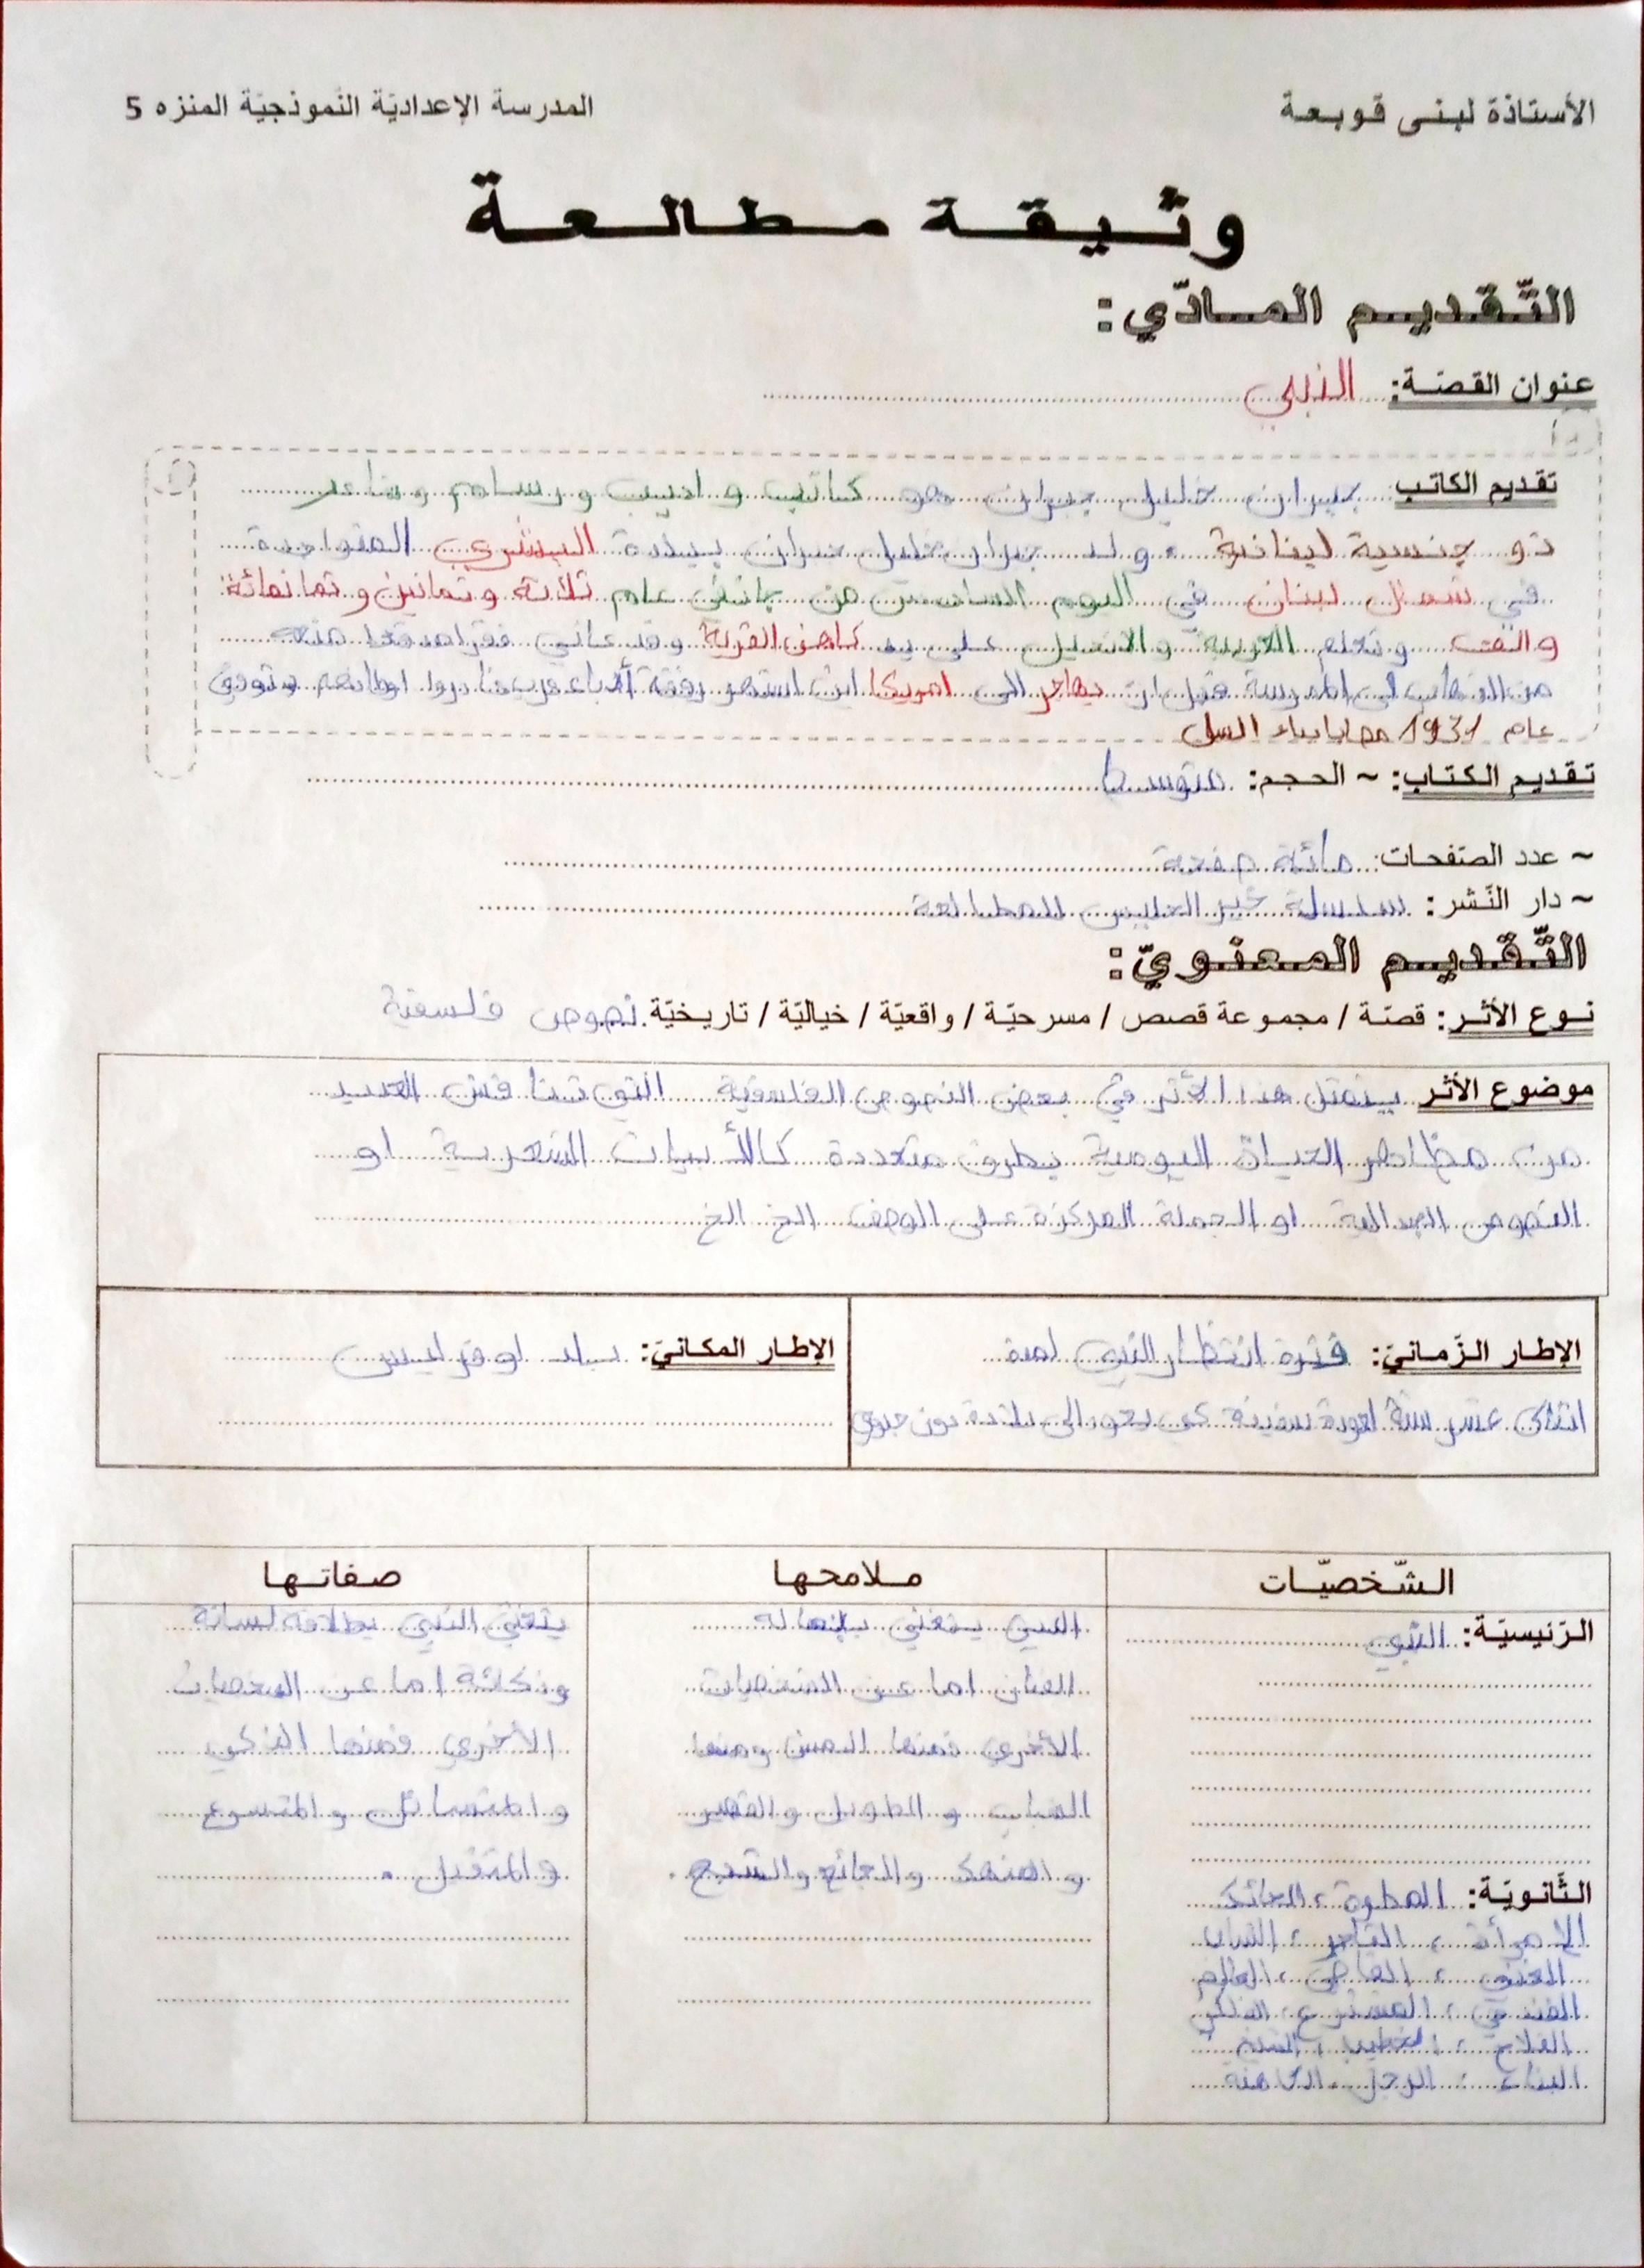 الأستاذة لبنى قوبعة
المدرسة الإعداديّة النّموذجيّة المنزه 5
وثيقة مطالعة
التّقديم المادّي:
عنوان القصّة: النبي
تقديم الكاتب: جبران خليل جبران هو كاتب و اديب و رسام و شاعر
ذو جنسية لبنانية ، ولد جبران خليل جبران ببلدة البشري المتواجدة
في شمال لبنان في اليوم السادس من جانفي عام ثلاثة و ثمانين و ثمانمائة
والف و تعلم العربية و الانجيل على يد كاهن القرية وقد عانى فقرا مدقعا منعه
من الذهاب الى المدرسة قبل ان يهاجر الى امريكا اين اشتهر رفقة أدباء عرب غادروا اوطانهم وتوفي
عام 1931 مصابا بداء السل
تقديم الكتاب: ~ الحجم: متوسط
~ عدد الصّفحات: مائة صفحة
~ دار النّشر: سلسلة خير الجليس للمطالعة
التّقديم المعنويّ:
نوع الأثر: قصّة / مجموعة قصص / مسرحيّة / واقعيّة / خياليّة / تاريخيّة نصوص فلسفية
موضوع الأثر يتمثل هذا الأثر في بعض النصوص الفلسفية التي تناقش العديد
من مظاهر الحياة اليومية بطرق متعددة كالأبيات الشعرية او
النصوص الجدالية او الجملة المركزة على الوصف الخ الخ
الإطار الزّمانيّ: فترة انتظار النبي لمدة
اثنتى عشر سنة لعودة سفينة كي يعود الى بلدة دون جدوى
الإطار المكانيّ: بلد اورفليس
الشّخصيّات
ملامحها
صفاتها
الرّئيسيّة: النبي
الثّانويّة: المطرة ، الحائك
الإمرأة ، التاجر ، الشاب
الغني ، القاضي ، العالم
الفلاح ، الخطيب ، الشيخ
البناء ، الرجل ، الكاهنة
النبي يتغنى بجماله
الفتان اما عن الشخصيات
الأخرى فمنها المسن ومنها
الشاب و الطويل و القصير
و المنهك و الجائع و الشبع .
يتغنى النبي بطلاقة لسانه
وذكائه اما عن الشخصيات
الأخرى فمنها الذكي
و المتسائل و المتسرع
و المتقبل .